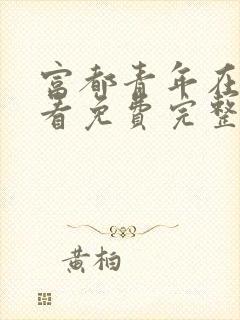 富都青年在
看免费完整
黄柏